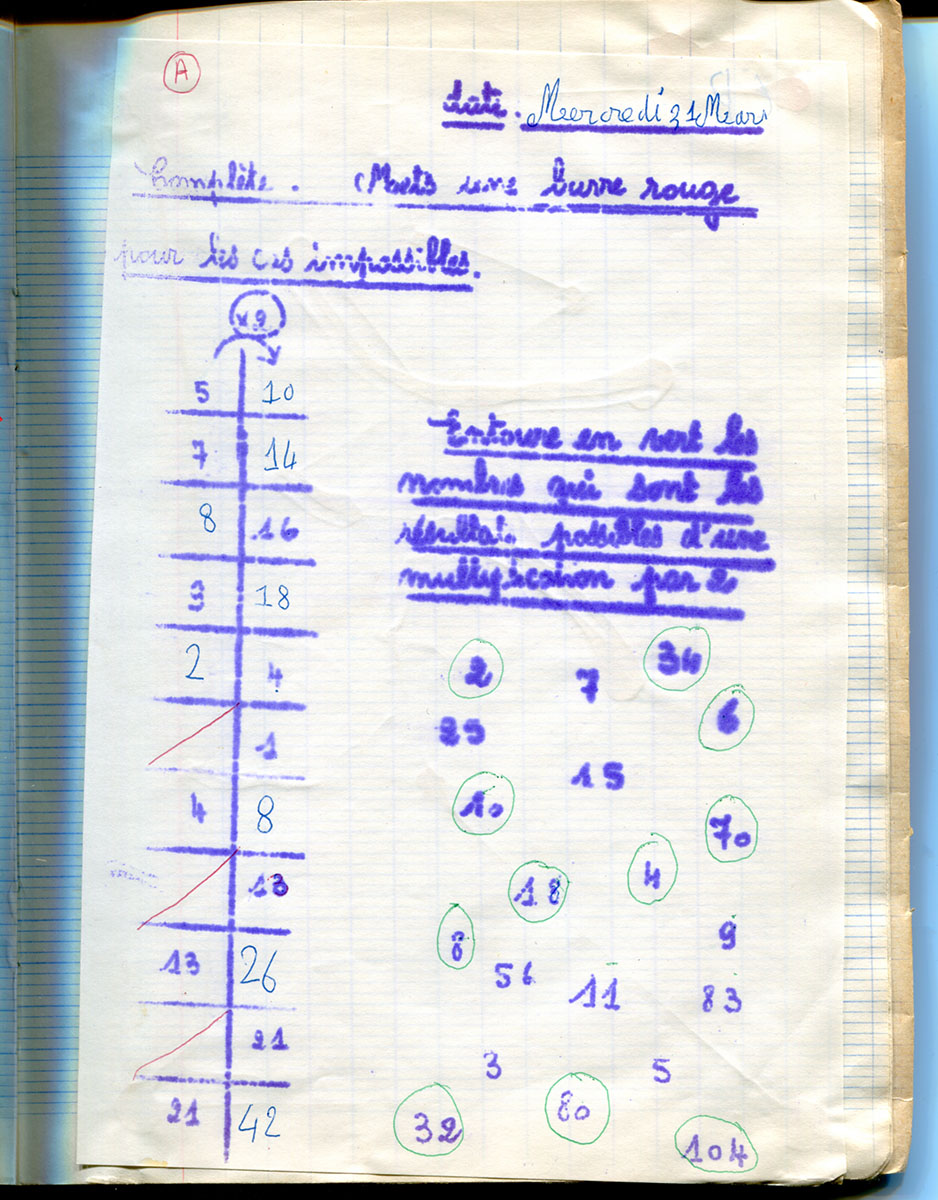 A
date. Mercredi 31 Mars
Complète. Mets une barre rouge
pour les cas impossibles.
x2
5 10
7 14
8 16
3 18
2 4
1
4 8
13
13 26
21
21 42
Entoure en vert les
nombres qui sont les
résultat. possibles d'une
multiplication par 2
2 7 34
29 6
15
10 70
18 4
8 9
56 11 83
3 5
32 80 104